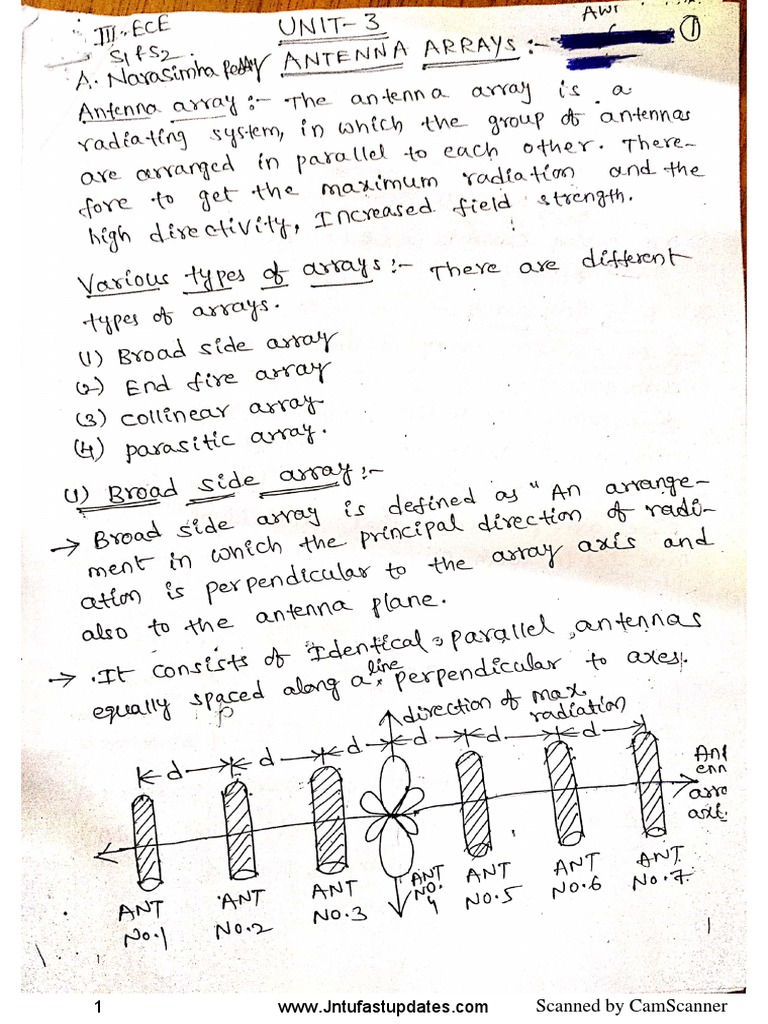 III-ECE
S1 & S2
A. Narasimha Reddy
UNIT-3
ANTENNA ARRAYS :-
AWP
①
Antenna array :- The antenna array is a
radiating system, in which the group of antennas
are arranged in parallel to each other. There-
fore to get the maximum radiation and the
high directivity, Increased field strength.
Various types of arrays :- There are different
types of arrays.
(1) Broad side array
(2) End fire array
(3) collinear array
(4) parasitic array.
(1) Broad side array :-
→ Broad side array is defined as "An arrange-
ment in which the principal direction of radi-
ation is perpendicular to the array axis and
also to the antenna plane.
→ .It consists of Identical, parallel, antennas
equally spaced along a line, perpendicular to axes.
direction of max.
radiation
d d d d d d
Ant
enn
arra
axi.
ANT
No.1
ANT
No.2
ANT
No.3
ANT
NO.
4
ANT
No.5
ANT
No.6
ANT
No.7
1 www.Jntufastupdates.com Scanned by CamScanner